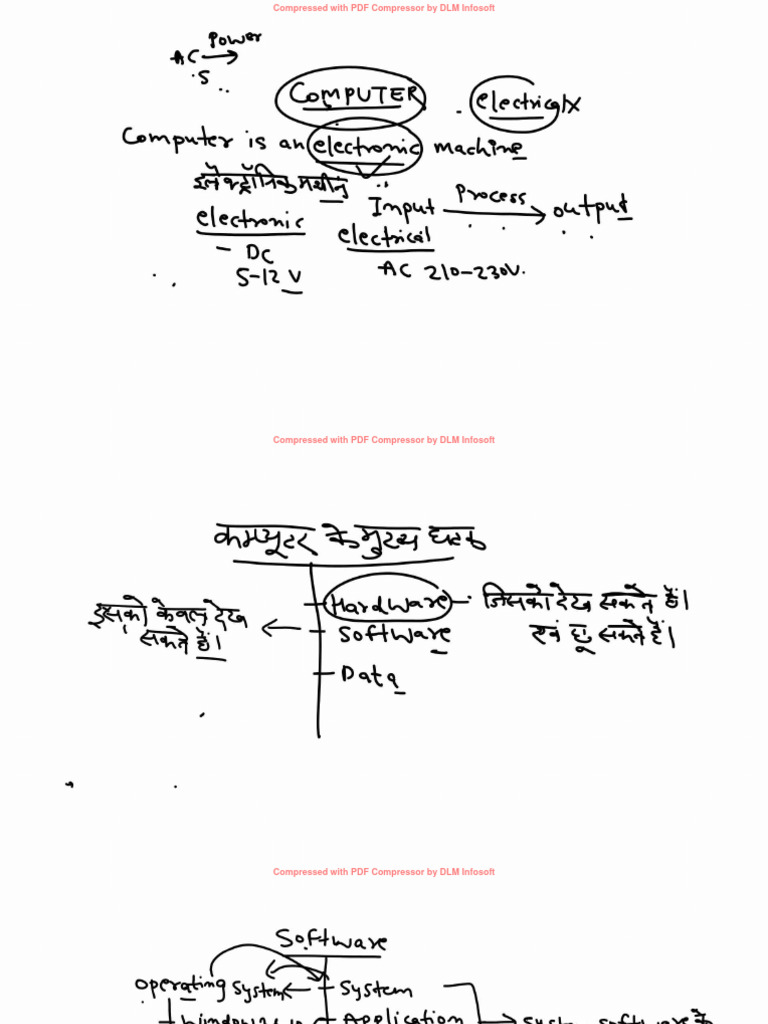 Compressed with PDF Compressor by DLM Infosoft
Power
AC
S
COMPUTER
electrical X
Computer is an electronic machine
इलेक्ट्रॉनिक मशीन
Input Process output
electronic electrical
- DC
5-12 V
AC 210-230V.
Compressed with PDF Compressor by DLM Infosoft
कम्प्यूटर के मुख्य घटक
Hardware - जिसको देख सकते हैं।
एवं छू सकते हैं।
Software
इसको केवल देख
सकते हैं।
Data
Compressed with PDF Compressor by DLM Infosoft
Software
operating system System
windows Application
System software के